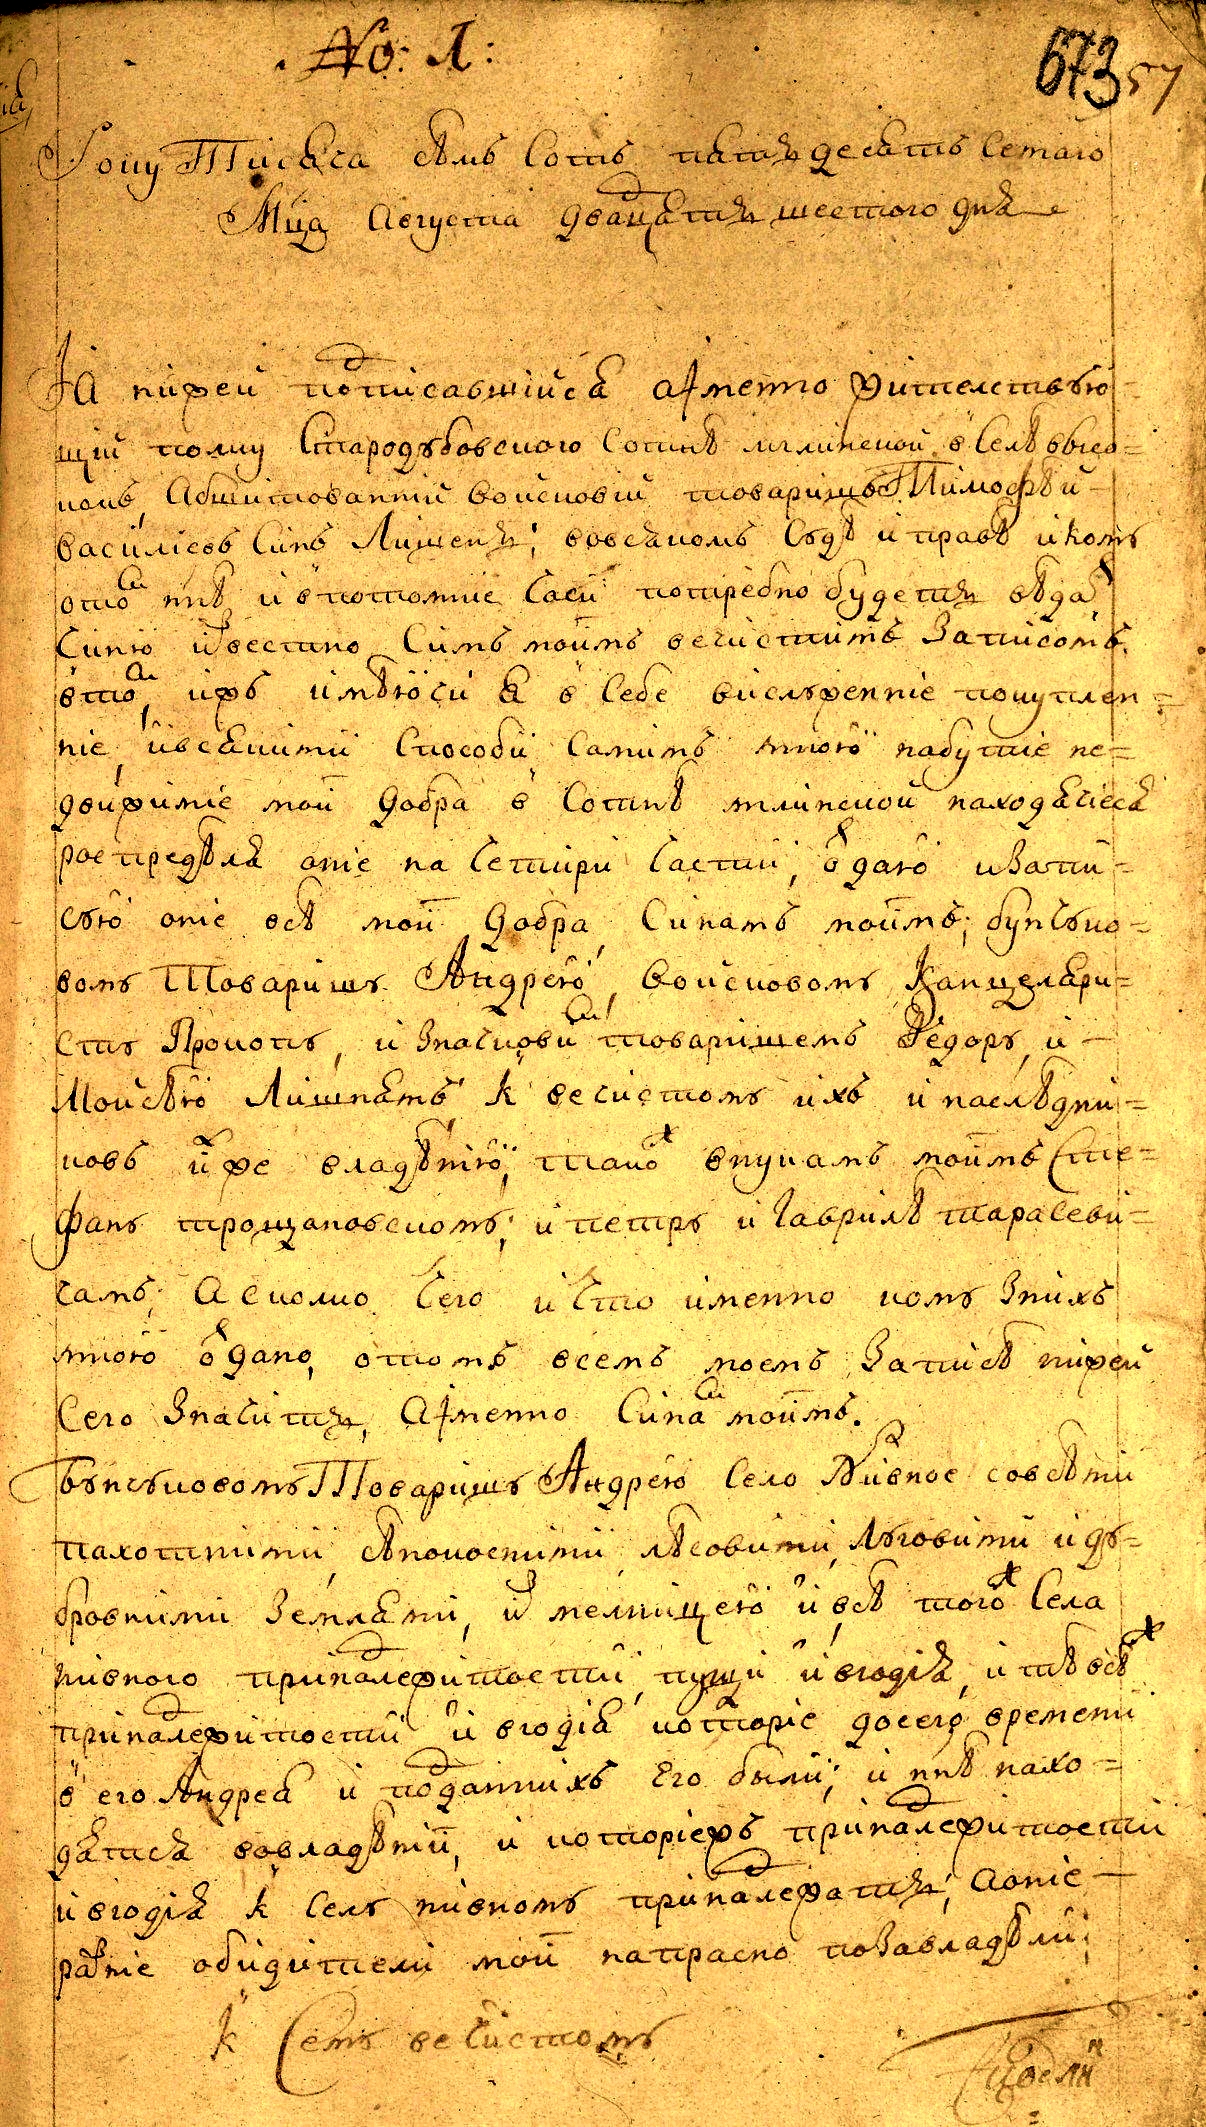 No: 1:
673 57
Року Тисяча семъ Сотъ пятдесятъ Семаго
Мца Августа двадцятъ шестого дня
Я нижей подписавшійся а именно жителствую-
щій полку Стародубовского Сотнѣ мглинской в Селѣ высо-
комъ, Абшитованній войсковій товаришъ Тимофѣй
василіевъ Синъ Лишень, вовсякомъ Судѣ и правѣ и кому
отомъ ннѣ и впотомніе часи потребно будетъ вѣдать
Чиню извѣстно Симъ моимъ вечистимъ Записомъ.
втомъ, ижъ имѣючи я в Себе вислуженніе покуплен-
ніе, и всякими способи самимъ мною набутіе не-
движиміе мои добра в Сотнѣ мглинской находячіеся
роспредѣля оніе на Четири Части, отдаю и Запи-
сую оніе всѣ мои добра Синамъ моимъ; бунчуко-
вому Товаришу Андрею, войсковому Канцеляри-
сту Прокопу, и Значковимъ товаришемъ Федору, и
Моисѣю Лишнямъ к вечистому ихъ и наслѣдни-
ковъ ихъ же владѣнію, такожъ внукамъ моимъ Сте-
фану трощановскому; и петру и Гаврилѣ тарасеви-
чамъ; А сколко Чего и Что именно кому Знихъ
мною отдано, отомъ всемъ моемъ Записѣ нижей
Сего Значитъ, А именно Синамъ моимъ.
Бунчуковому Товаришу Андрею Село Нивное совсѣми
пахотними, сѣнокосними лѣсовими, луговими и ду-
бровними Землями, из мелницею и всѣ тогожъ Села
нивного приналежитости, пущи и вгодія, и тѣ всѣжъ
приналежитости и вгодія которіе досего времени
в его Андрея и подданнихъ Его были; и ннѣ нахо-
дятся вовладѣнии, и которіежъ приналежитости
и вгодія к Селу нивному приналежатъ, А оніе
разніе обидители мои напрасно позавладѣли;
к Сему вечистому